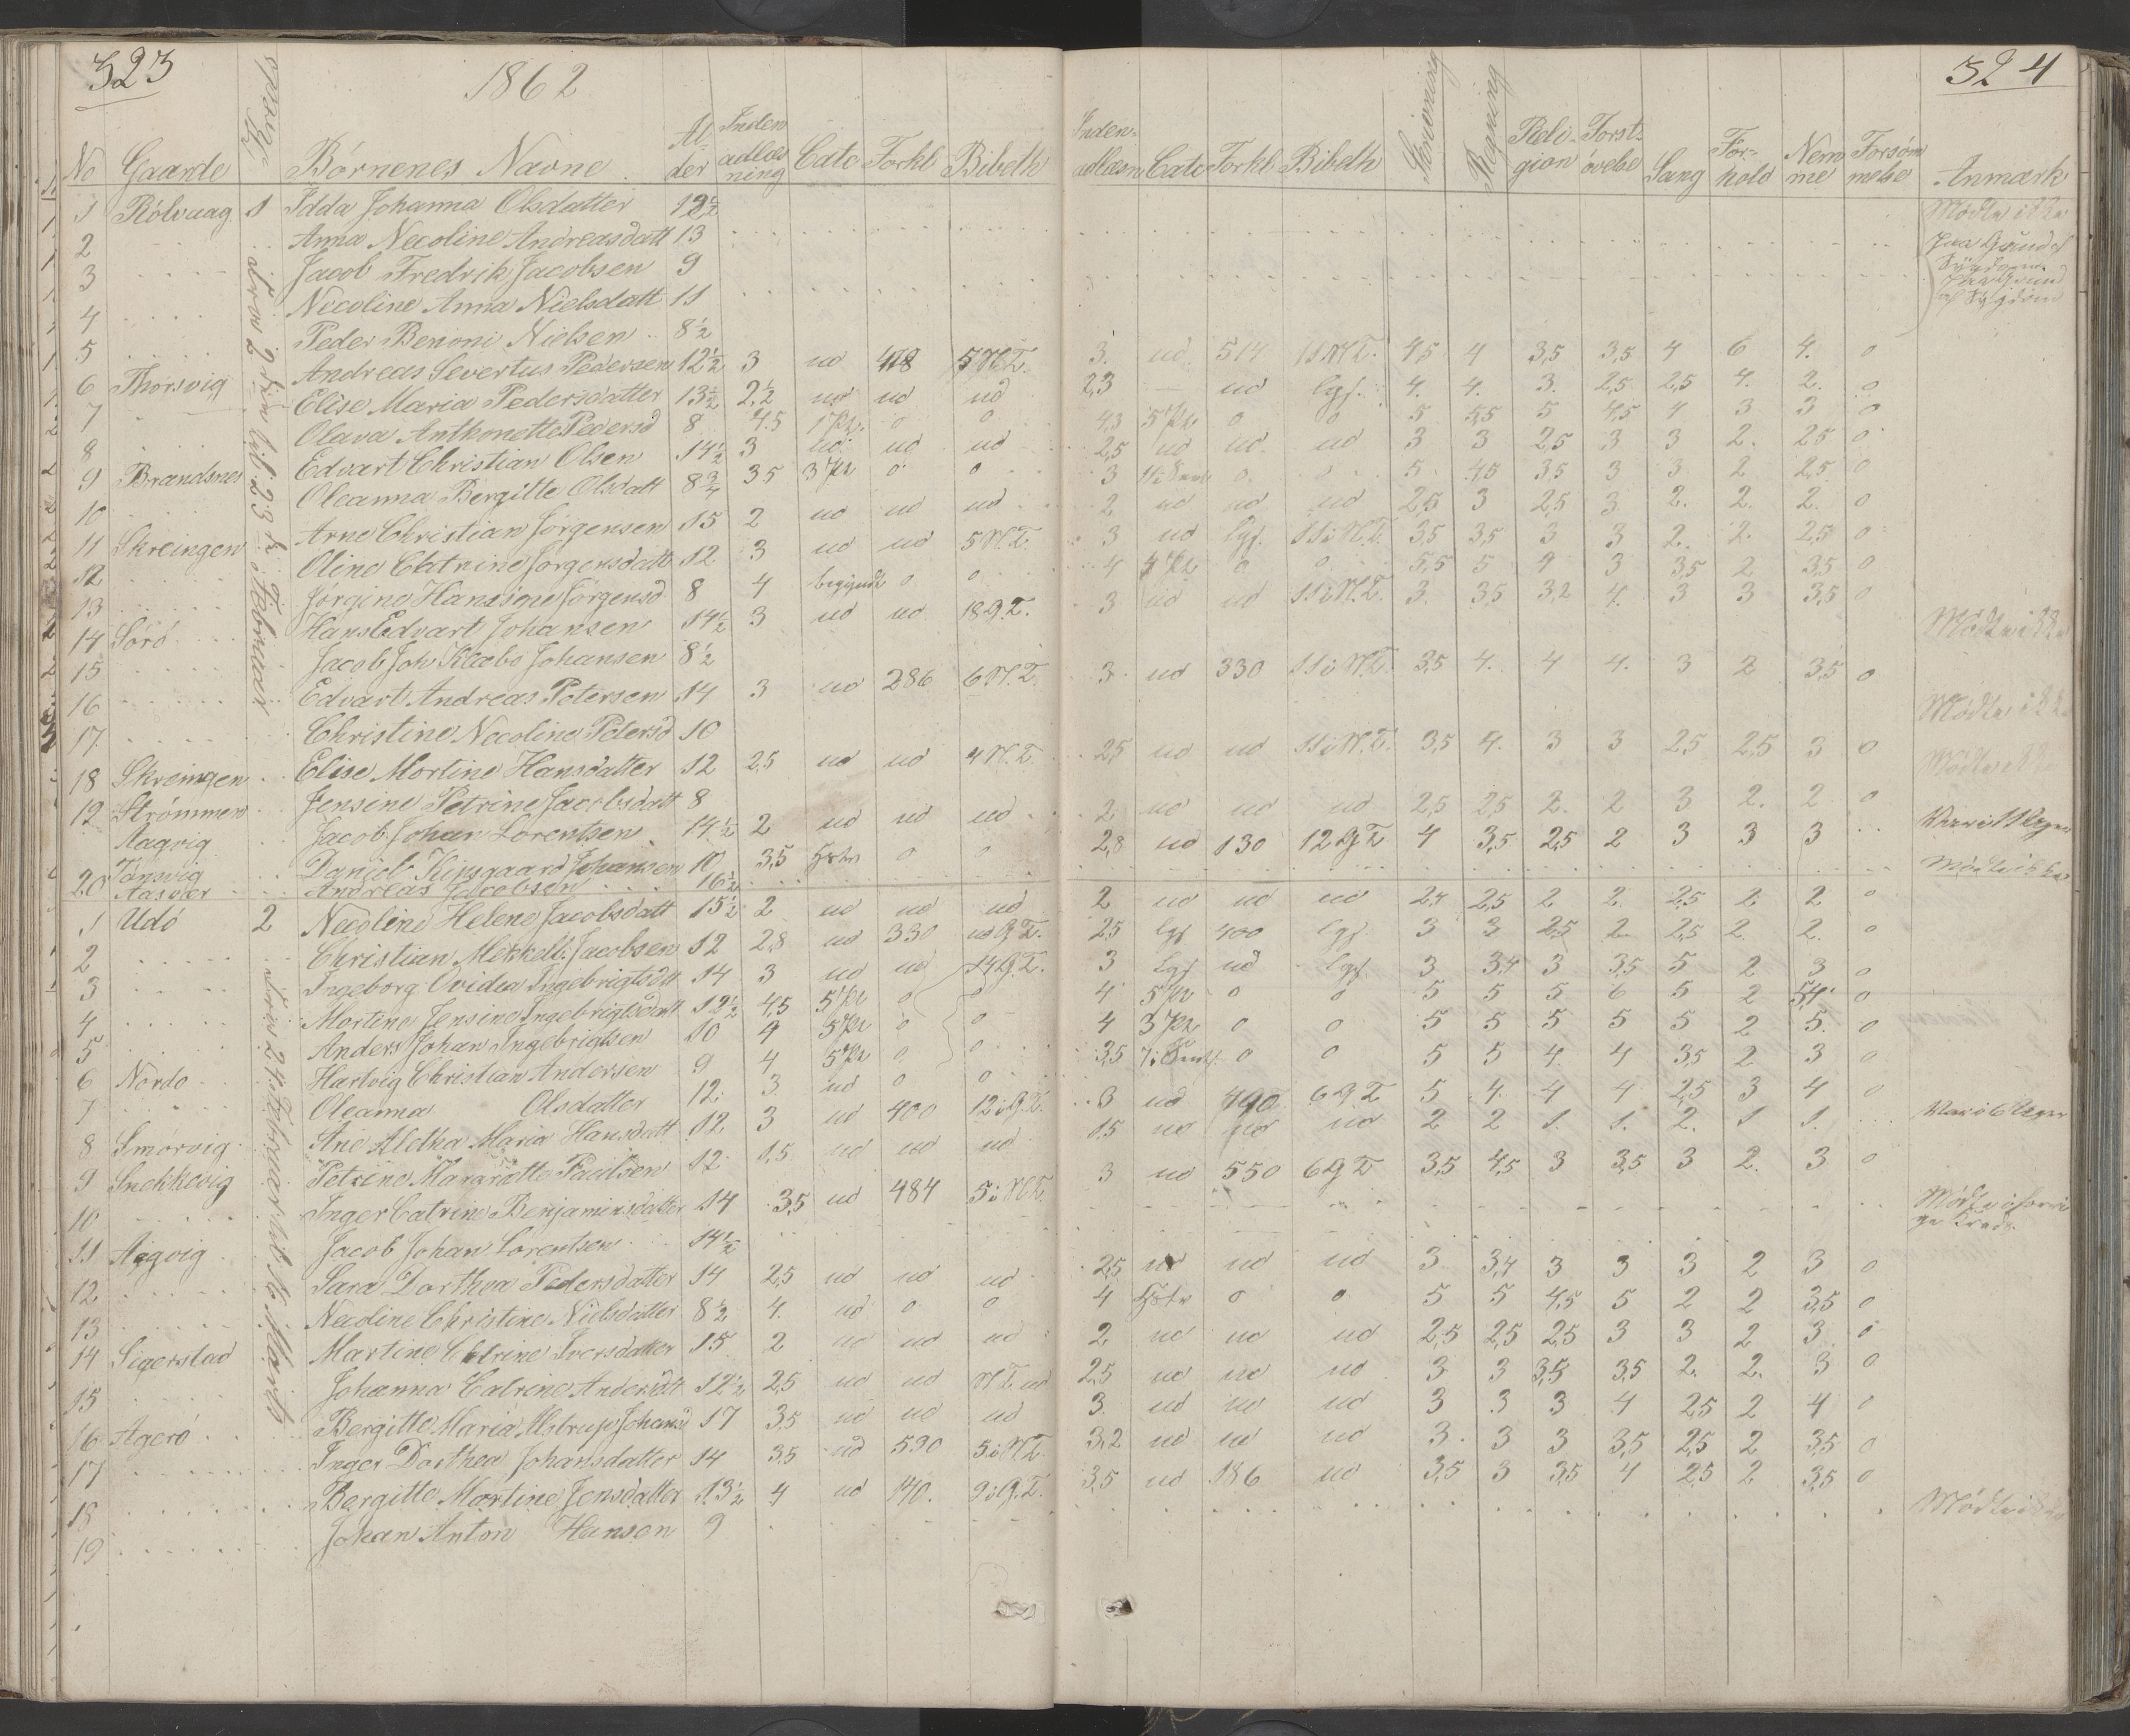 323
1862
No Gaarde Kreds Börnenes Navne Al-der Inden adlæs ning Catc Forkl Bibelh
1 Rölvaag 1 Idda Johanna Olsdatter 12½
2 Anna Necoline Andreasdatt 13
3 Jacob Fredrik Jacobsen 9
4 Necoline Anna Nielsdatt 11
5 Peder Benoni Nielsen 8½
6 Thorsvig Andreas Severtus Pedersen 12½ 3 ud 418 5 N.T.
7 Elise Maria Pedersdatter 13½ 2,2 ud ud ud
8 Olava Anthonette Pedersd 8 4.5 1 Pr. 0 0
9 Brandsnes Edvart Christian Olsen 14½ 3 ud ud ud
10 Oleanna Bergitte Olsdatt 8¾ 35 3 Pr 0 0
11 Skreingen Arne Christian Jörgensen 15 2 ud ud ud
12 Oline Catrine Jörgensdatt 12 3 ud ud 5 N.T.
13 Jörgine Hansine Jörgensd 8 4 begynde 0 0
14 Sörö Hans Edvart Johansen 14½ 3 ud ud 18 G.T.
15 Jacob Joh Klæbo Johansen 8½
16 Edvart Andreas Petersen 14 3 ud 286 6 N.T.
17 Christine Necoline Petersd 10
18 Skreingen Elise Mortine Hansdatter 12 2,5 ud ud 4 N.T.
19 Strömmen Jensine Petrine Jacobsdatt 8
Aagvig Jacob Johan Lorentsen 14½ 2 ud ud ud
20 Tönsvig Daniel Kirsgaard Johansen 10 3,5 0 0
Aasvær Andreas Jacobsen 16½
1 Udö 2 Necoline Helene Jacobsdatt 15½ 2 ud ud ud
2 Christian Mekkelb. Jacobsen 12 2,8 ud 330 ud G.T.
3 Ingeborg Ovidea Ingebrigtsdtt 14 3 ud ud 14 G.T.
4 Mortine Jensine Ingebrigtsdatt 12½ 4,5 5 Pr 0 0
5 Anders Johan Ingebrigtsen 10 4 5 Pr 0 0
6 Nordö Hartvig Christian Andersen 9 4 5 Pr 0 0
7 Oleanna Olsdatter 12 3 ud 0 0
8 Smörvig Ane Aletha Maria Hansdatt 12 3 ud 400 12 i G.T.
9 Snekkevig Petrine Margrette Paulsen 12 1,5 ud ud ud
10 Inger Catrine Benjaminsdatter 14 3,5 ud 484 5 i N.T.
11 Agvig Jacob Johan Lorentsen 14½
12 Sara Dorthea Pedersdatter 14 2,5 ud ud ud
13 Necoline Christine Nielsdatter 8½ 4. ud 0 0
14 Sigerstad Martine Catrine Iversdatter 15 2 ud ud ud
15 Johanna Catrine Andersdtt 12½ 2,5 ud ud N.T. ud
16 Agerö Bergitte Maria Alstrup Johansd 17 3,5 ud ud ud
17 Inger Dorthea Johansdatter 14 3,5 ud 590 5 i N.T.
18 Bergitte Martine Jensdatter 13½ 4 ud 140. 9 i G.T.
19 Johan Anton Hansen 9
324
Inden-adlæsn Catc Forkl Bibelh Skrivning Regning Reli-gion Forst-övelse Sang For-hold Nem me Forsöm melse Anmærk
Mödte ikke
Paa Grund af Sygdom
Paa Grund af Sygdom
3. ud 514 11 N.T. 4,5 4 3,5 3,5 4 6 4. 0
2,3 — ud lgf. 4. 4. 3. 2,5 2,5 4. 2. 0
4,3 5 Pr 0 0 5 5,5 5 4,5 4 3 3 0
2,5 ud ud ud 3 3 2,5 3 3 2. 2,5 0
3 0. 5 4,5 3,5 3 3 2 2,5 0
2 ud ud ud 2,5 3 2,5 3 2. 2. 2. 0
3 ud lgf. 11 i N.T. 3,5 3,5 3 3 2. 2. 2,5 0
4 4 Pr 0 0 5,5 5 4 3 3,5 2 3,5 0
3 ud ud 11 i N.T. 3. 3,5 3,2 4. 3 3 3,5 0
Mödte ikke
3 ud 330 11 i N.T. 3,5 4. 4 4. 3 2 3,5 0
Mödte ikke
2,5 ud ud 11 i N.T. 3,5 4. 3 3 2,5 2,5 3 0
Mödte ikke
2 ud ud ud 2,5 2,5 2. 2 3 2. 2 0
2,8 ud 130 12 G.T 4 3,5 2,5 2 3 3 3
Mödte ikke
2 ud ud ud 2,4 2,5 2 2. 2,5 2 2 0
2,5 lgf 400 lgf. 3 3 2,5 2 2,5 2. 2. 0
3 lgf ud lgf. 3 3,4 3 3,5 5 2 3 0
4 5 Pr 0 0 5 5 5 6 5 2 5,4 0
4 3 Pr 0 0 5 5 5 5 5 2 5. 0
3,5 0 0 5 5 4 4 3,5 2 3 0
3 ud 490 6 G T 5 4. 4 4 2,5 3 4 0
1,5 ud ud ud 2 2 1. 1. 2. 1 1.
3 ud 550 6 G T 3,5 4,5 3 3,5 3 2. 3 0
2,5 ud ud ud 3 3,4 3 3 3 2 3 0
4 0 0 5 5 4,5 5 2 2 3,5 0
2 ud ud ud 2,5 2,5 2,5 3 3 2 3 0
2,5 ud ud ud 3 3 3,5 3,5 2. 2. 3 0
3. ud ud ud 3 3 3 4 2,5 2 4 0
3,2 ud ud ud 3. 3 3 3,5 2,5 2 3,5 0
3,5 ud 186 ud 3,5 3 3,5 4 2,5 2 3,5 0
Mödte ikke